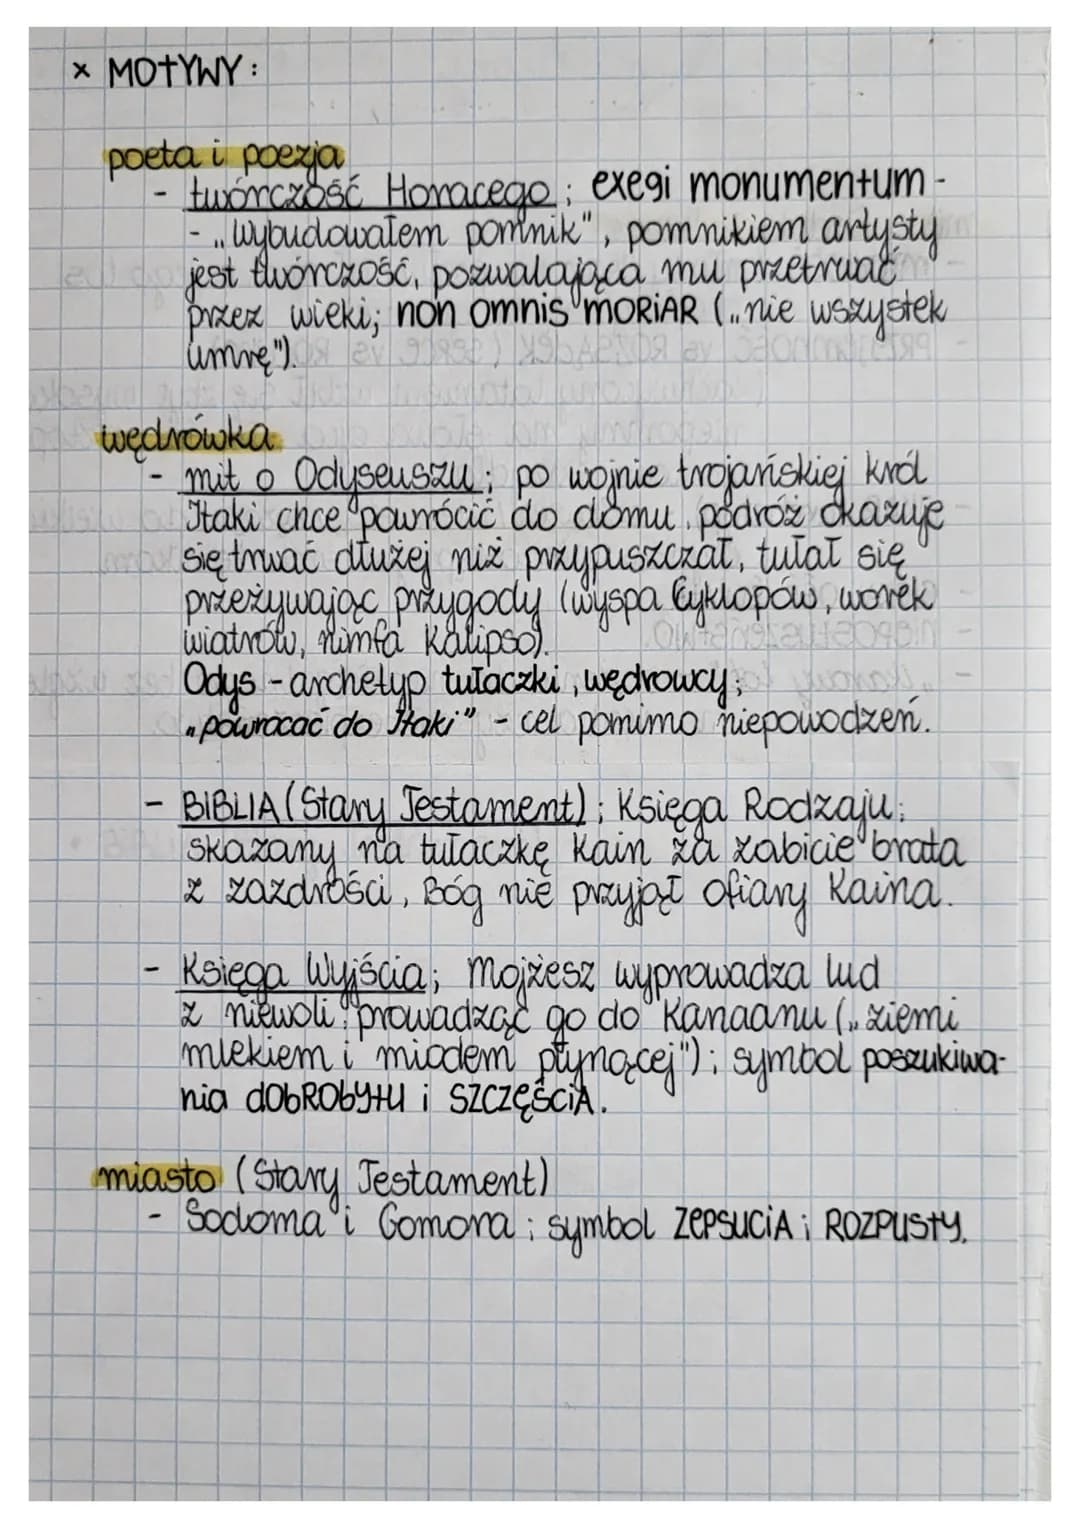 × MOTYWY:
poeta i poezja
- twórczość Horacego; exegi monumentum -
- „Wybudowałem pomnik", pomnikiem artysty
jest twórczość, pozwalająca mu przetrwać
przez wieki; non omnis MORIAR („nie wszystek
umrę").
wędrówka
- mit o Odyseuszu; po wojnie trojańskiej król
Itaki chce powrócić do domu, podróż okazuje
się trwać dłużej niż przypuszczał, tułał się
przeżywając przygody (wyspa Cyklopów, worek
wiatrów, nimfa Kalipso).
Odys - archetyp tułaczki, wędrowcy;
„powracać do Itaki" - cel pomimo niepowodzeń.
- BIBLIA (Stary Testament); Księga Rodzaju;
skazany na tułaczkę Kain za zabicie brata
z zazdrości, Bóg nie przyjął ofiary Kaina.
- Księga Wyjścia; Mojżesz wyprowadza lud
z niewoli, prowadząc go do Kanaanu („ziemi
mlekiem i miodem płynącej"); symbol poszukiwa-
nia dobrobytu i SZCZĘŚCIA.
miasto (Stary Testament)
- Sodoma i Gomora; symbol ZEPSUCIA i ROZPUSTY.